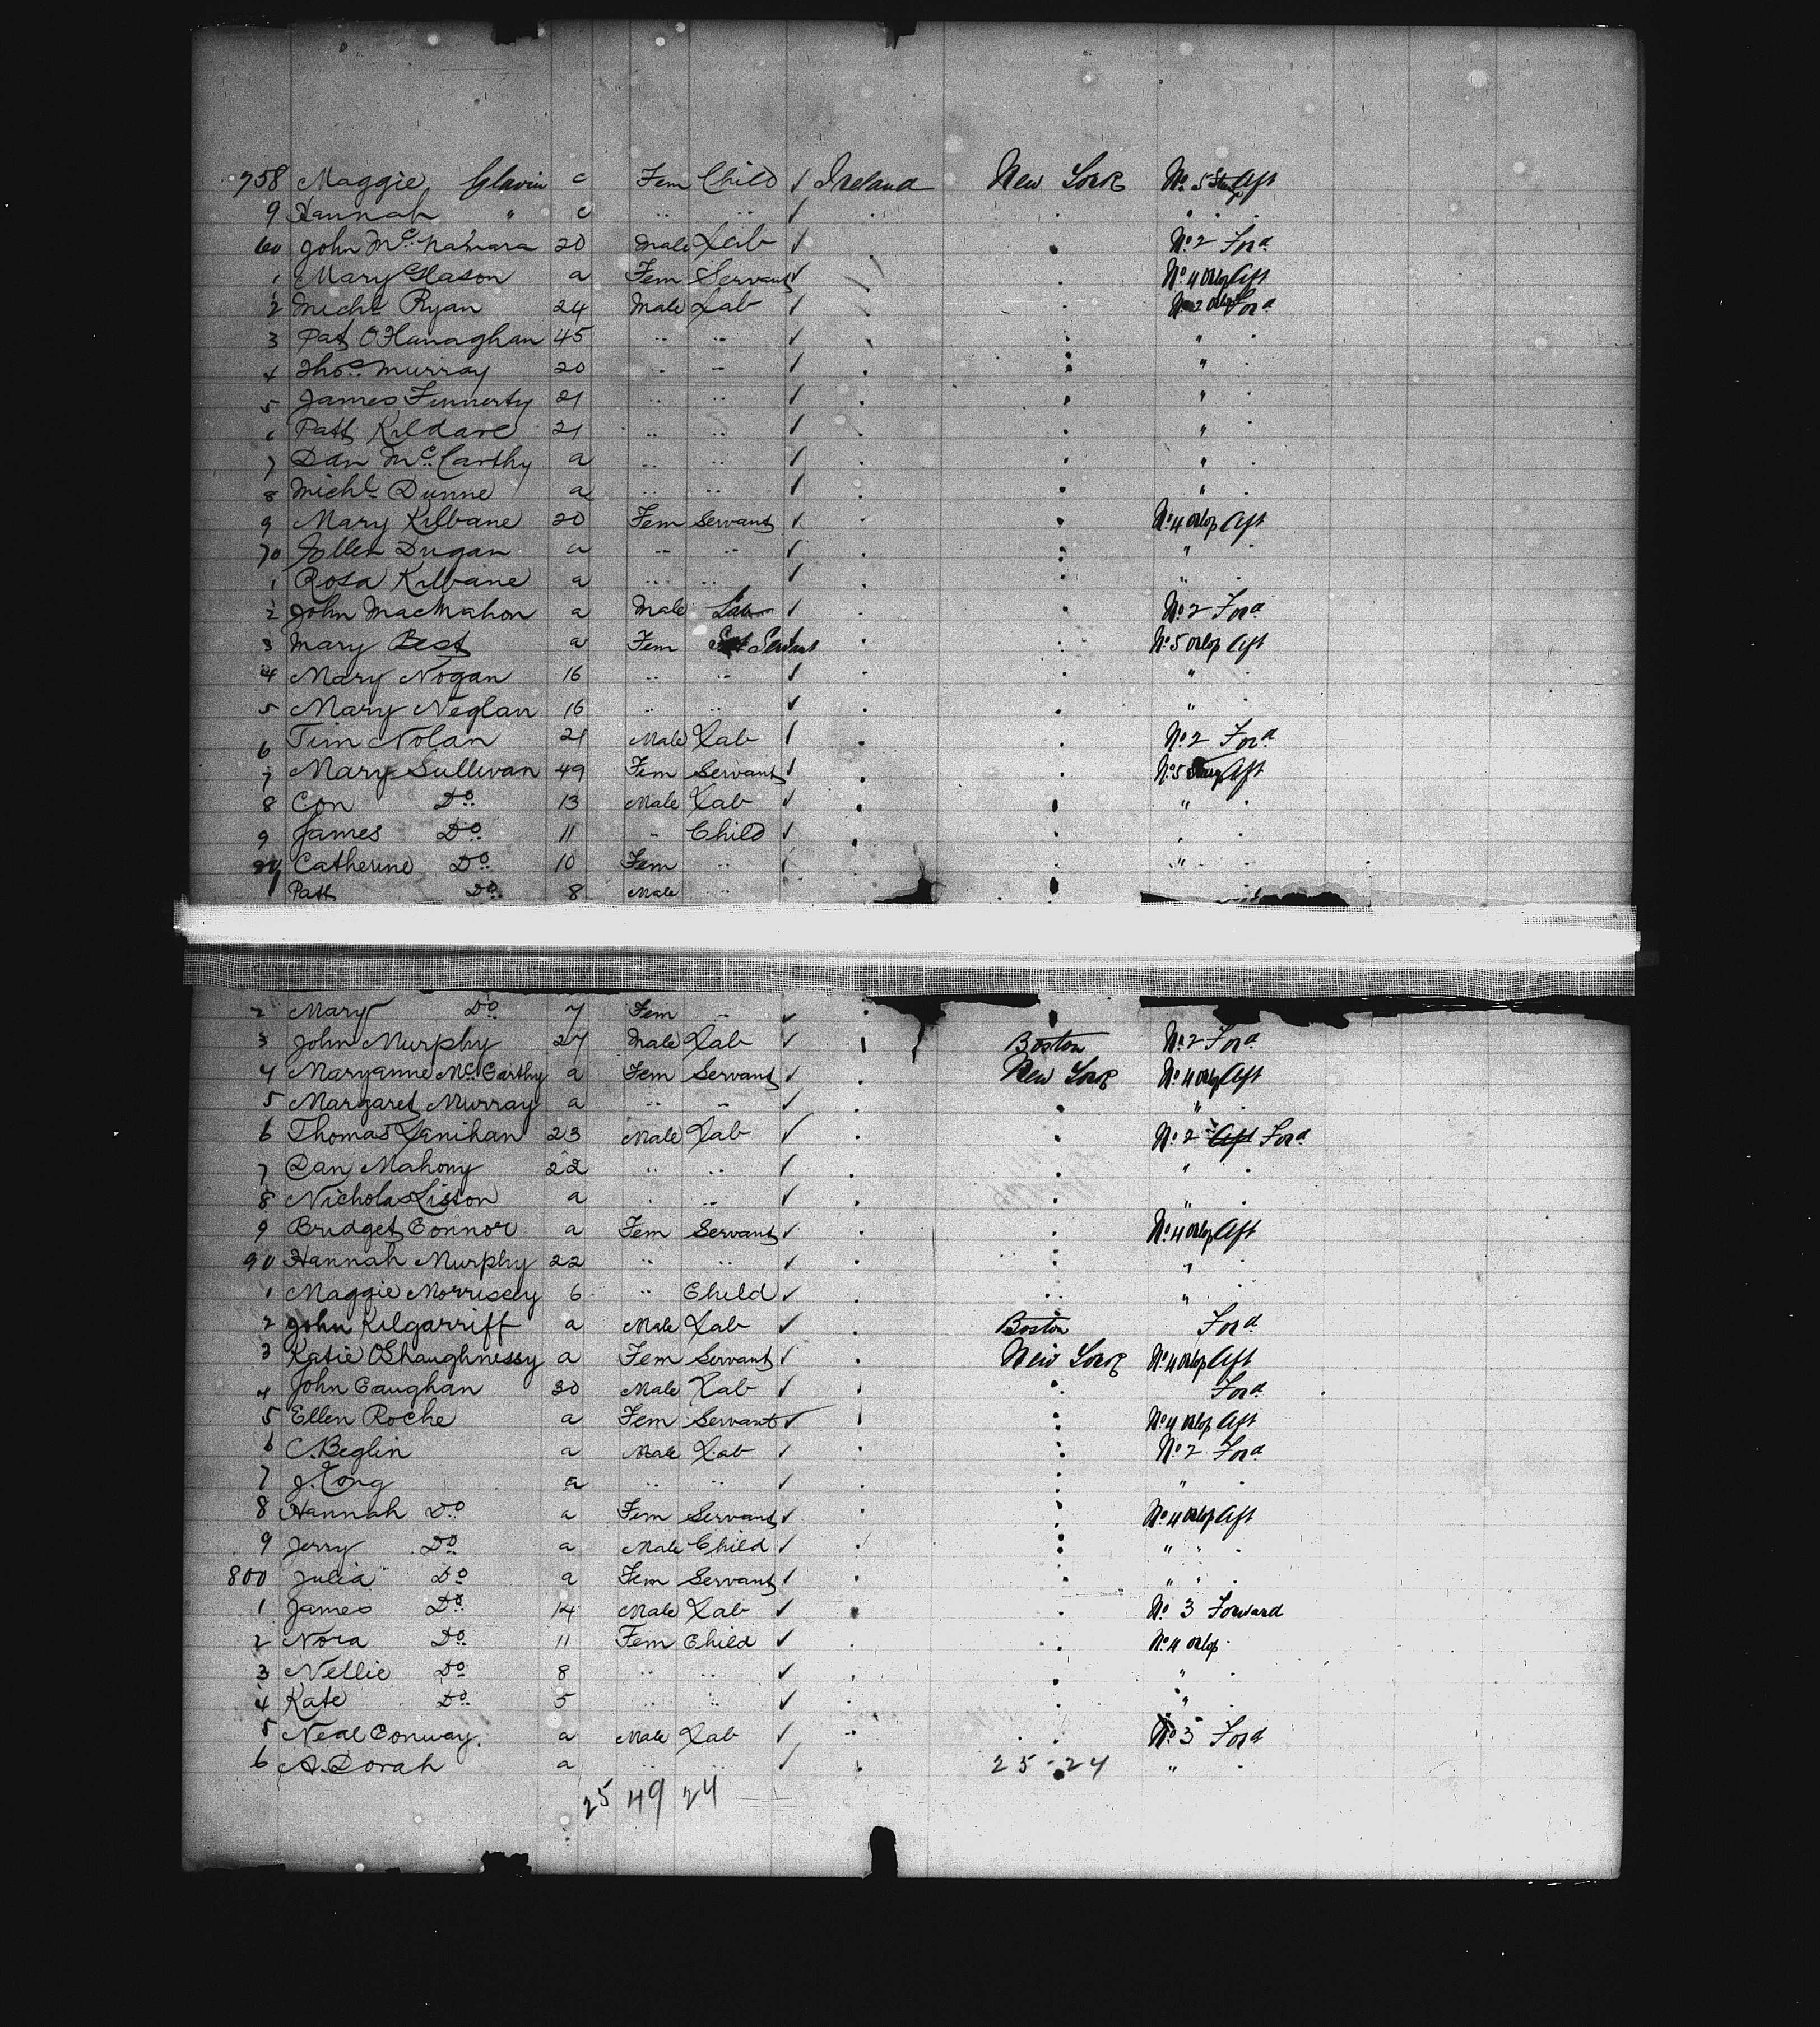 758 Maggie Glavin c Fem Child ✓ Ireland New York No. 5 Aft
9 Hannah " c " " ✓ . . " . .
60 John McNamara 20 Male Lab ✓ . . No. 2 Ford
1 Mary Glason a Fem Servant ✓ . No. 4 Orlop Aft
2 Michl Ryan 24 Male Lab ✓ . No. 2 Orlop Ford
3 Pat O'Flanaghan 45 " " ✓ . . " .
4 Thos. Murray 20 " " ✓ . . " .
5 James Finnerty 21 " " ✓ . . " .
6 Patt Kildare 21 " " ✓ . . " .
7 Dan McCarthy a " " ✓ . . " .
8 Michl Dunne a " " ✓ . . " .
9 Mary Kilbane 20 Fem Servant ✓ . . No. 4 Orlop Aft
70 Ellen Dugan a " " ✓ . . " .
1 Rosa Kilbane a " " ✓ . . " .
2 John MacMahon a Male Lab ✓ . . No. 2 Ford
3 Mary Best a Fem Servant . . No. 5 Orlop Aft
4 Mary Nogan 16 " " ✓ . . " .
5 Mary Neglan 16 " " ✓ . . " .
6 Tim Nolan 21 Male Lab ✓ . . No. 2 Ford
7 Mary Sullivan 49 Fem Servant ✓ . . No. 5 Aft
8 Con Do. 13 Male Lab ✓ . . " .
9 James Do. 11 " Child ✓ . . " .
Catherine Do. 10 Fem " ✓ . . " .
1 Patt Do. 8 Male "
2 Mary Do. 7 Fem " ✓ . .
3 John Murphy 27 Male Lab ✓ Boston No. 2 Ford
4 Maryanne McCarthy a Fem Servant ✓ . New York No. 4 Orlop Aft
5 Margaret Murray a " " ✓ . . " .
6 Thomas Lenihan 23 Male Lab ✓ . . No. 2 Aft Ford
7 Dan Mahony 22 " " ✓ . . " .
8 Nicholas Liston a " " ✓ . . " .
9 Bridget Connor a Fem Servant ✓ . . No. 4 Orlop Aft
90 Hannah Murphy 22 " " ✓ . . " .
1 Maggie Morrissey 6 " Child ✓ . . " .
2 John Kilgarriff a Male Lab ✓ . Boston Ford
3 Katie OShaughnessy a Fem Servant ✓ . New York No. 4 Orlop Aft
4 John Gaughan 30 Male Lab ✓ . . Ford
5 Ellen Roche a Fem Servant ✓ . . No. 4 Orlop Aft
6 C. Beglin a Male Lab ✓ . . No. 2 Ford
7 J. Long a " " ✓ . . " .
8 Hannah Do. a Fem Servant ✓ . . No. 4 Orlop Aft
9 Jerry Do. a Male Child ✓ . . " " .
800 Julia Do a Fem Servant ✓ . . " " .
1 James Do. 14 Male Lab ✓ . . No. 3 Forward
2 Nora Do. 11 Fem Child ✓ . . No. 4 Orlop .
3 Nellie Do 8 " " ✓ . . " .
4 Kate Do. 5 " " ✓ . . " .
5 Neal Conway. a Male Lab ✓ . . No. 3 Ford
6 A. Dorah a " " ✓ . 25-24 " .
25 49 24